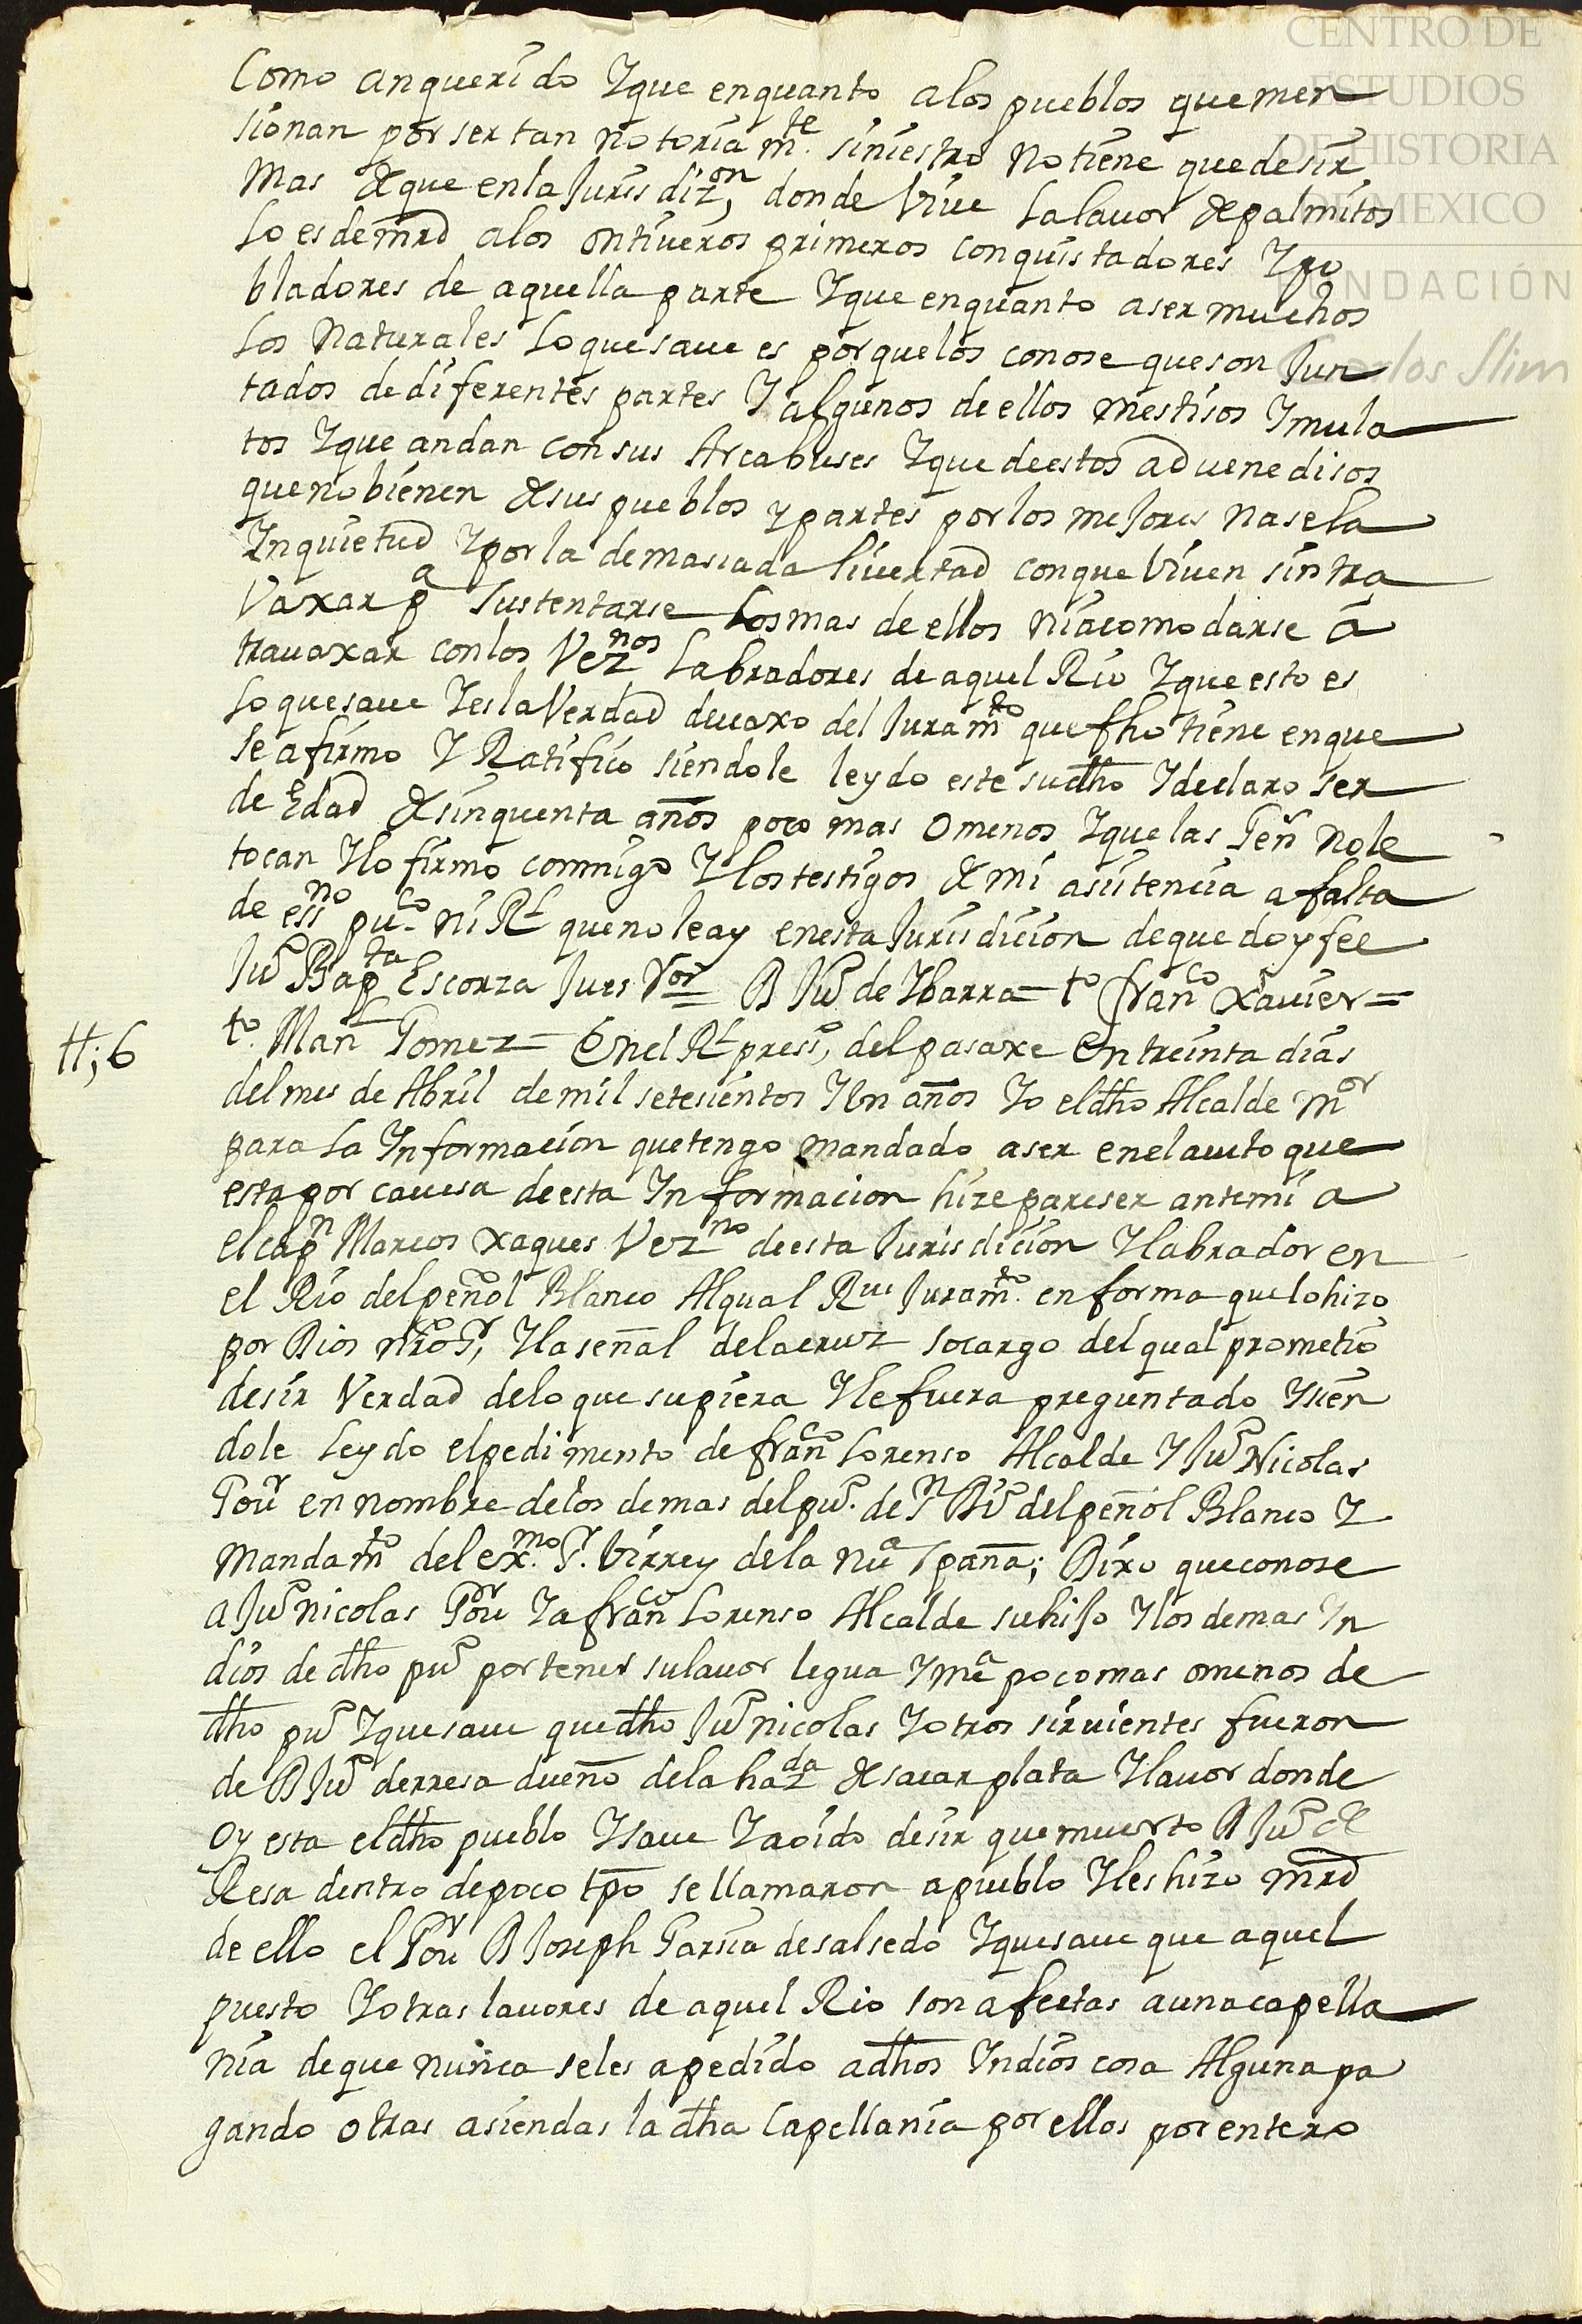 CENTRO DE
ESTUDIOS
DE HISTORIA
DE MEXICO
FUNDACIÓN
Carlos Slim
Como an querido Y que en quanto a los pueblos que men
sionan por ser tan notoriamte. siniestro no tiene que desir
Mas de que en la Jurisdizon, donde Vive La lavor de palmitos
Lo es de mrd a los ontiveros primeros conquistadores Y po
bladores de aquella parte Y que en quanto a ser muchos
Los Naturales Lo que save es porque los conose que son Jun
tados de diferentes partes Y algunos de ellos mestisos Y mula
tos Y que andan con sus Arcabuses Y que de estos advenedisos
que no bienen de sus pueblos y partes por los mejores nase la
Ynquietud Y por la demasiada livertad con que Viven sin tra
Vaxar pa sustentarse Los mas de ellos ni acomodarse á
travaxar con los Veznos Labradores de aquel Rio Y que esto es
Lo que save Y es la Verdad devaxo del Juramto que fho tiene en que
se afirmo Y Ratifico siendole leydo este su dho Y declaro ser
de Edad de sinquenta años poco mas o menos Y que las Gen no le
tocan Y lo firmo commigo Y los testigos de mi asistencia a falta
de essno puco ni Rl que no le ay en esta Jurisdicion de que doy fee
Ju° Bapta Escorza Jues Vor = D Ju° de Ybarra = to franco Xavier =
tt; 6
to. Manl Gomez = En el Rl press, del pasaxe en treinta dias
del mes de Abril de mil setesientos Y Un años Yo el dho Alcalde mor
para La Informacion que tengo mandado aser en el aucto que
esta por cavesa de esta Informacion hize pareser ante mi a
el capn Marcos Xaques Vezno de esta Jurisdicion Y labrador en
el Rio del peñol Blanco Al qual Rvi Juramto. en forma que lo hizo
por Dios nro Sr, Y la señal de la cruz so cargo del qual prometio
desir Verdad de lo que supiera Y le fuera preguntado Y sien
dole Leydo el pedimento de franco Lorenso Alcalde Y Ju° Nicolas
Gour en nombre de los demas del pu°. de Sn Bu° del peñol Blanco Y
mandamto del exmo. Sr. Virrey de la nua Spaña; Dixo que conose
a Ju° nicolas Gour Y a franco Lorenso Alcalde su hijo Y los demas Yn
dios de dho pu° por tener su lavor legua Y ma poco mas o menos de
dho pu° Y que save que dho Ju° nicolas Y otros sirvientes fueron
de D Ju° derresa dueño de la hazda de sacar plata Y lavor donde
oy esta el dho pueblo Y save Y a oido desir que muerto D Ju° de
Resa dentro de poco tpo se llamaron a pueblo Y les hizo mrd
de ello el Gour D Joseph Garsia de salsedo Y que save que aquel
puesto Y otras lavores de aquel Rio son afectas a una capella
nia de que nunca se les a pedido a dhos Yndios cosa Alguna pa
gando otras asiendas la dha Capellania por ellos por entero